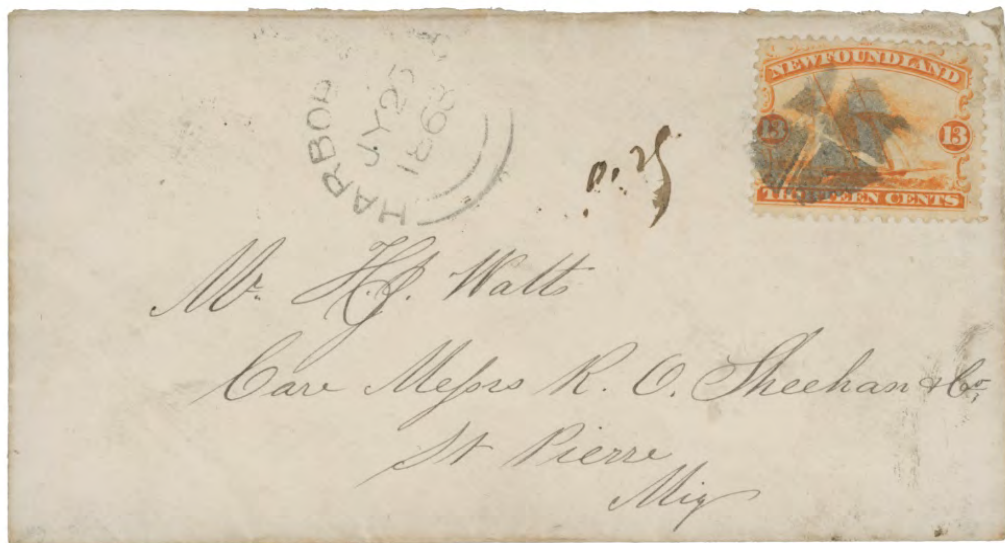 HARBOR
JY 25
1868
NEWFOUNDLAND
13 13
THIRTEEN CENTS
Mr. H. J. Watts
Care Messrs R. O. Sheehan & Co,
St Pierre
Miq